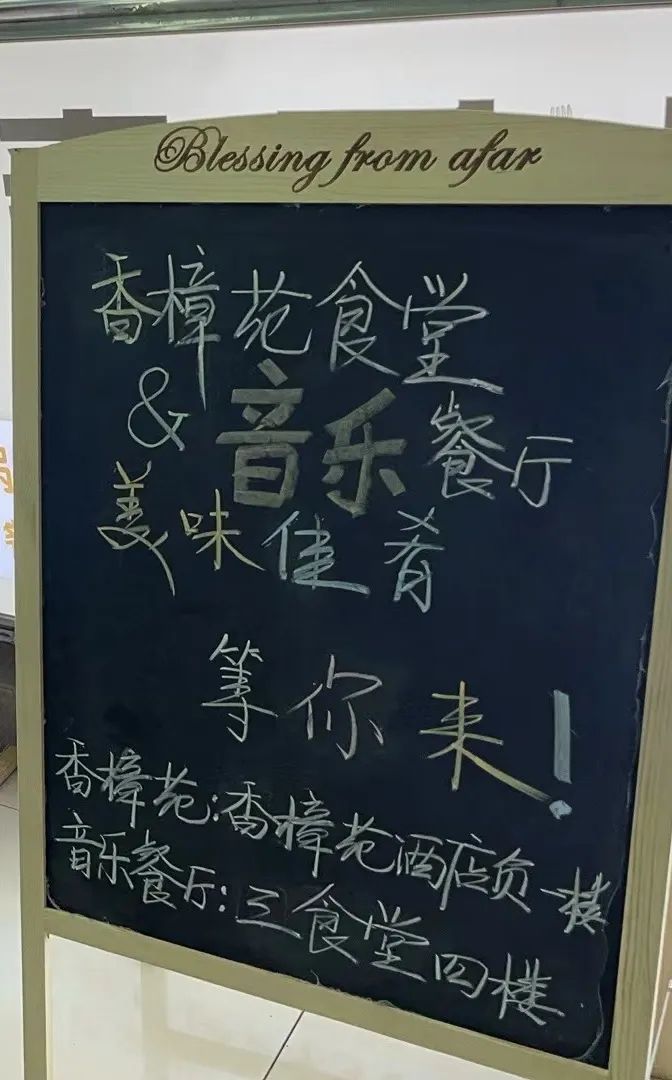 Blessing from afar
香樟苑食堂
&音乐餐厅
美味佳肴
等你来!
香樟苑:香樟苑酒店负一楼
音乐餐厅:三食堂四楼